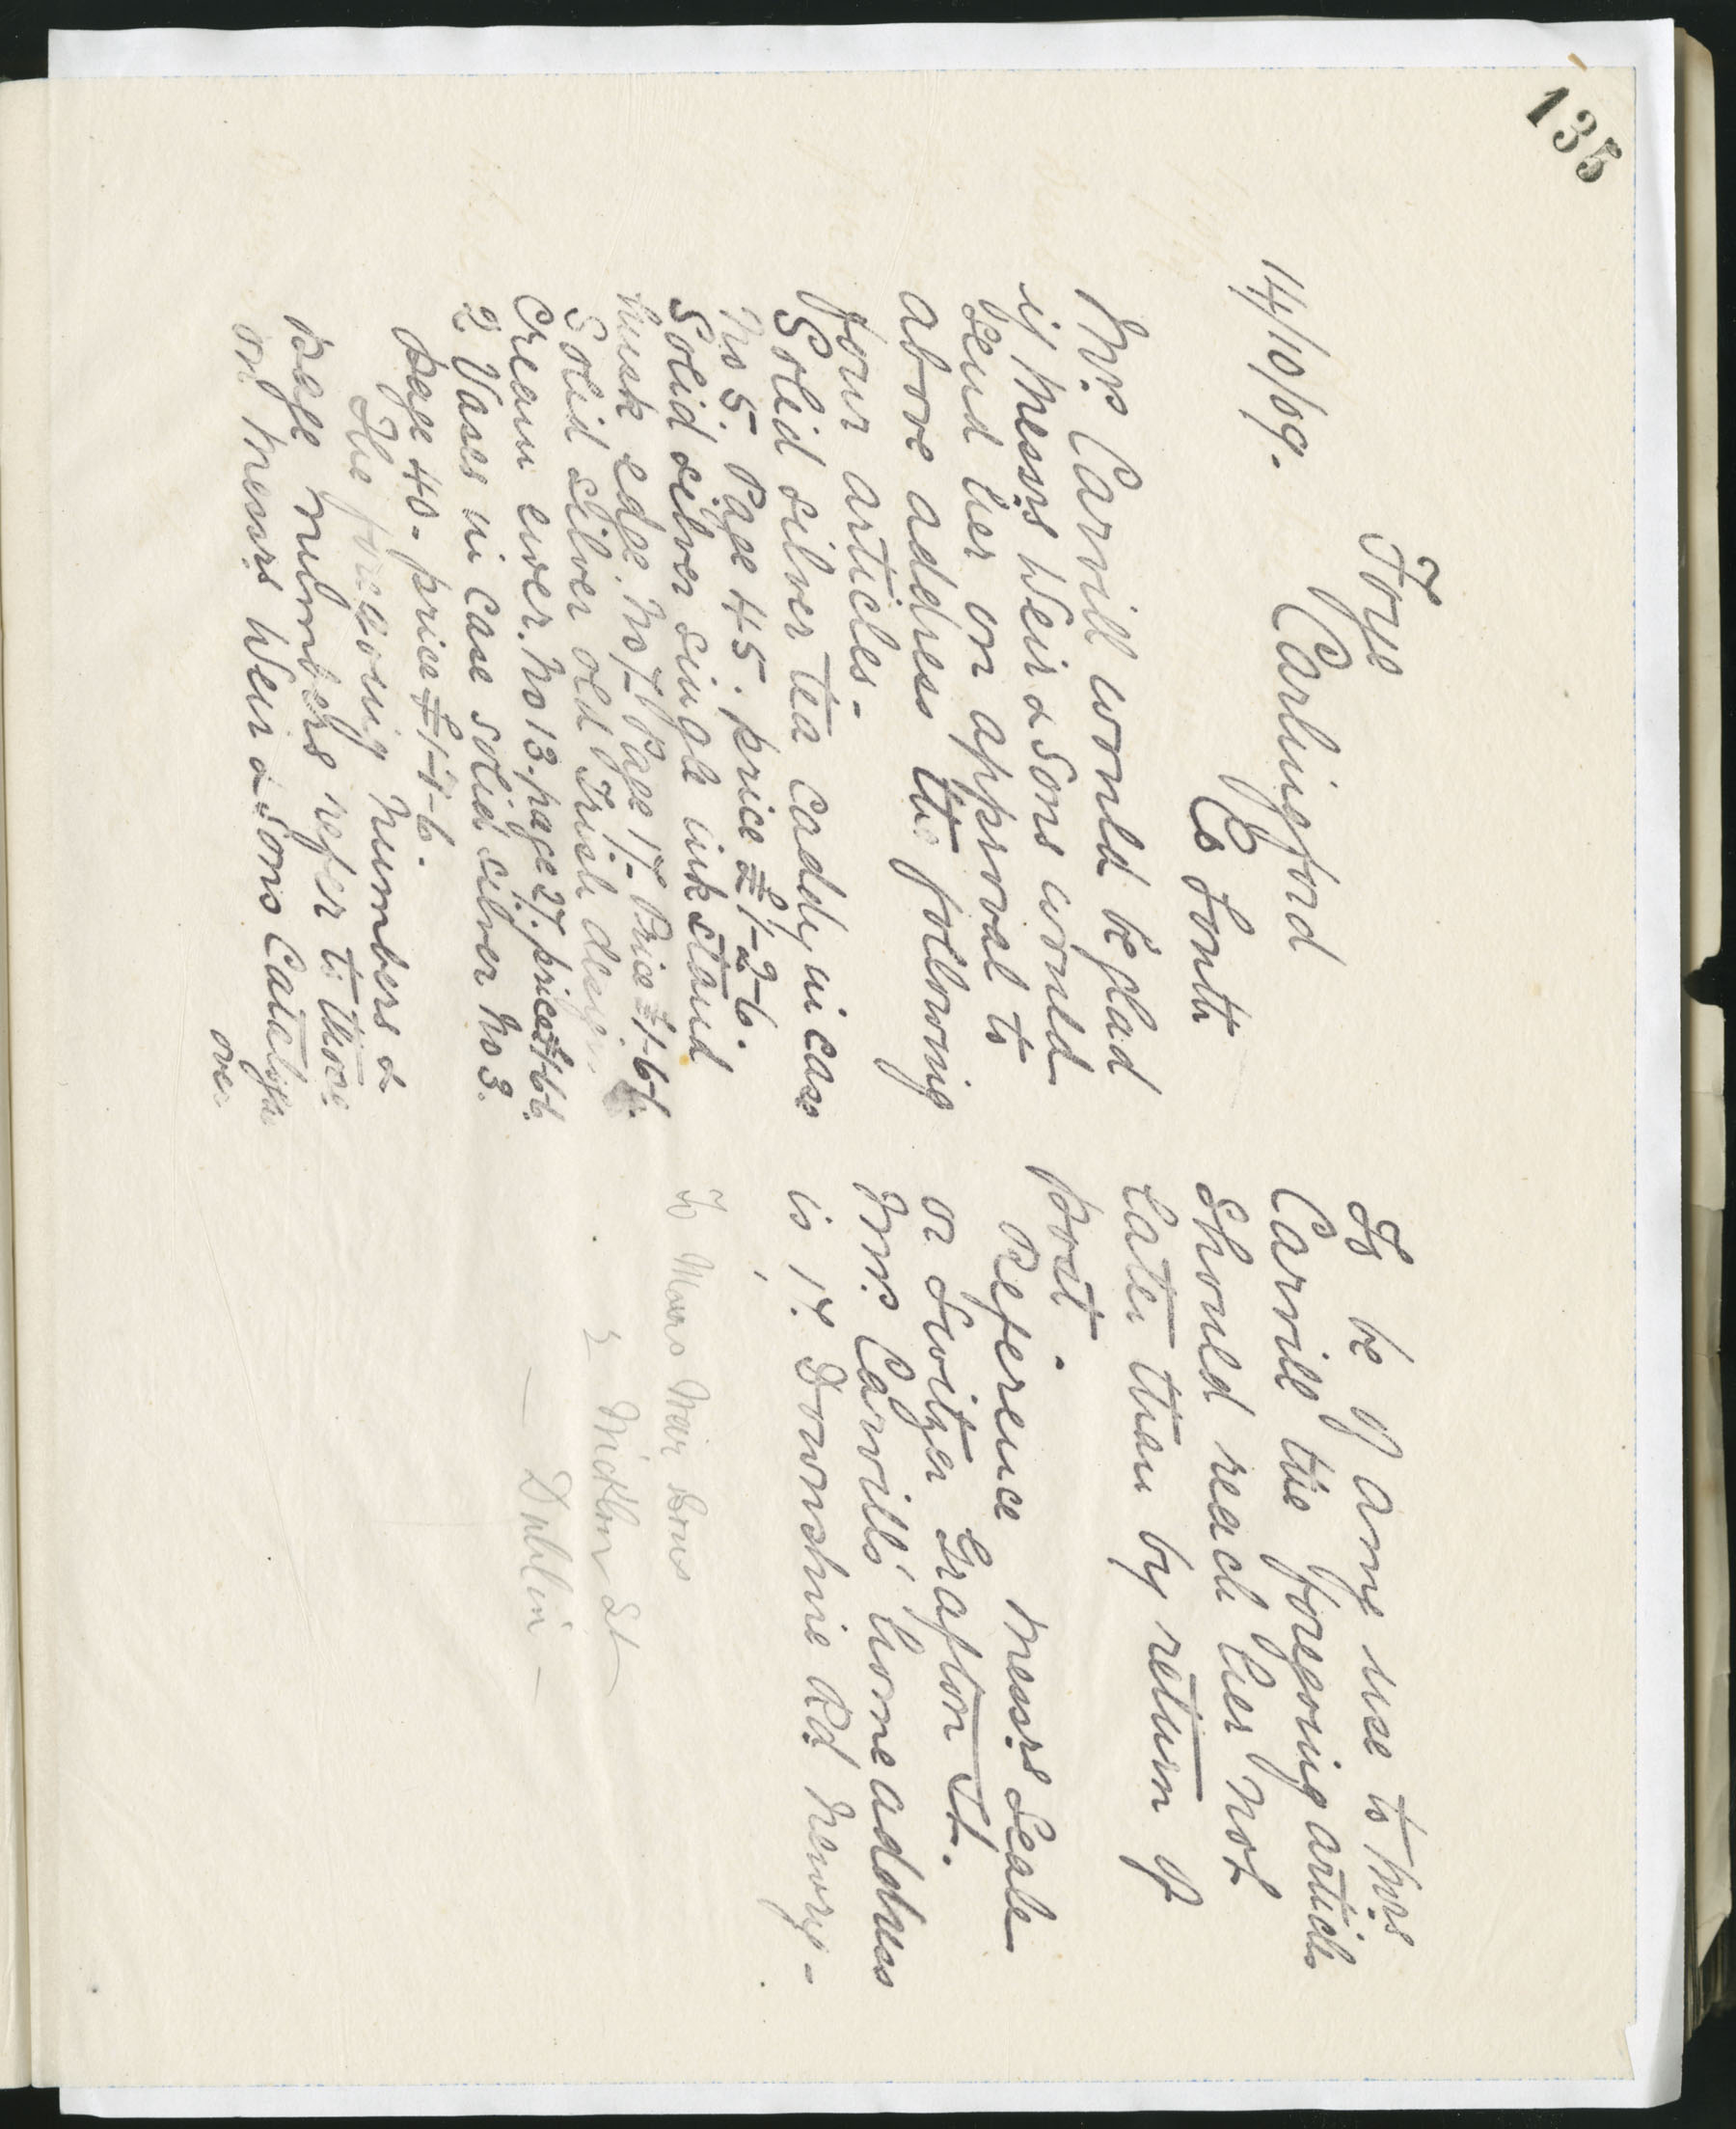 135
Foye
Carlingford
Co Louth
14/10/09.
Mrs Carvill would be glad
if Messrs Weir & Sons would
send her on approval to
above address the following
four articles -
Solid silver tea caddy in case
No 5 Page 45. price £1-2-6.
Solid silver single inkstand
husk edge. No 7 Page 17. Price £1-6-6.
Solid silver old Irish design
Cream ewer. No 13. page 27. price
2 Vases in case solid silver No 3.
Page 40 - price £1-1-6.
The foregoing numbers &
page numbers refer to those
on Messrs Weir & Sons Catalogue
over
To be of any use to Mrs
Carvill the foregoing articles
should reach her not
later than by return of
post.
Reference Messrs
or Switzer Grafton St.
Mrs Carvills' home address
is 17. Downshire Rd. Newry -
To Messrs Weir Sons
Wicklow St
- Dublin -